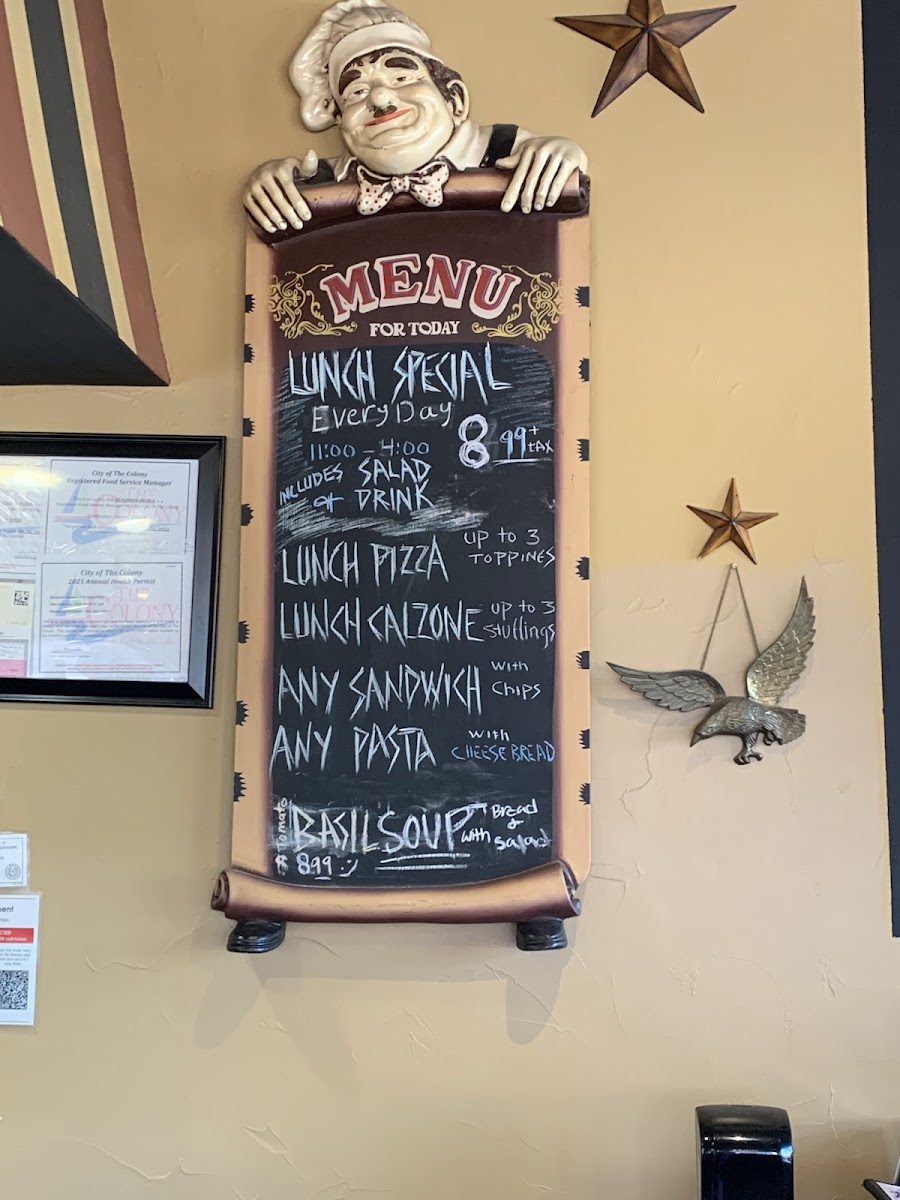 MENU
FOR TODAY
LUNCH SPECIAL
EveryDay
11:00 - 4:00
8 99 + tAX
INCLUDES SALAD
or DRINK
LUNCH PIZZA
up to 3
TOPPINGS
LUNCH CALZONE
up to 3
stuffings
ANY SANDWICH
with
CHips
ANY PASTA
with
CHEESE BREAD
tomato
BASIL SOUP
with
Bread
&
Salad
8.99
City of The Colony
Registered Food Service Manager
City of The Colony
2021 Annual Health Permit